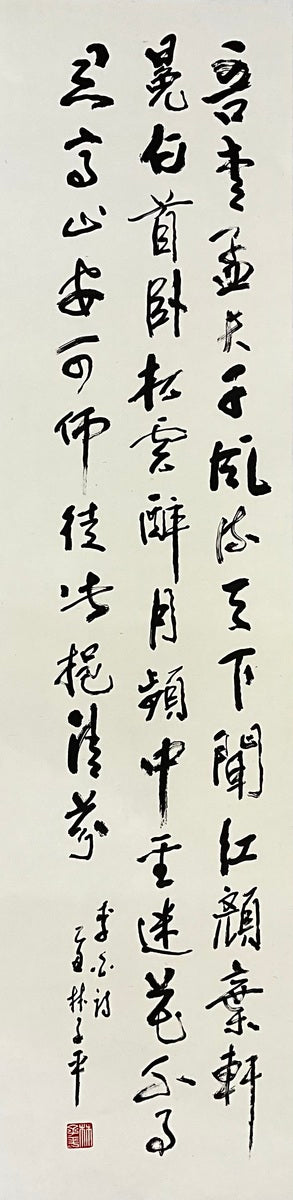 吾愛孟夫子風流天下聞紅顏棄軒
冕白首臥松雲醉月頻中聖迷花不事
君高山安可仰徒此挹清芬
李白詩
乙丑林子平